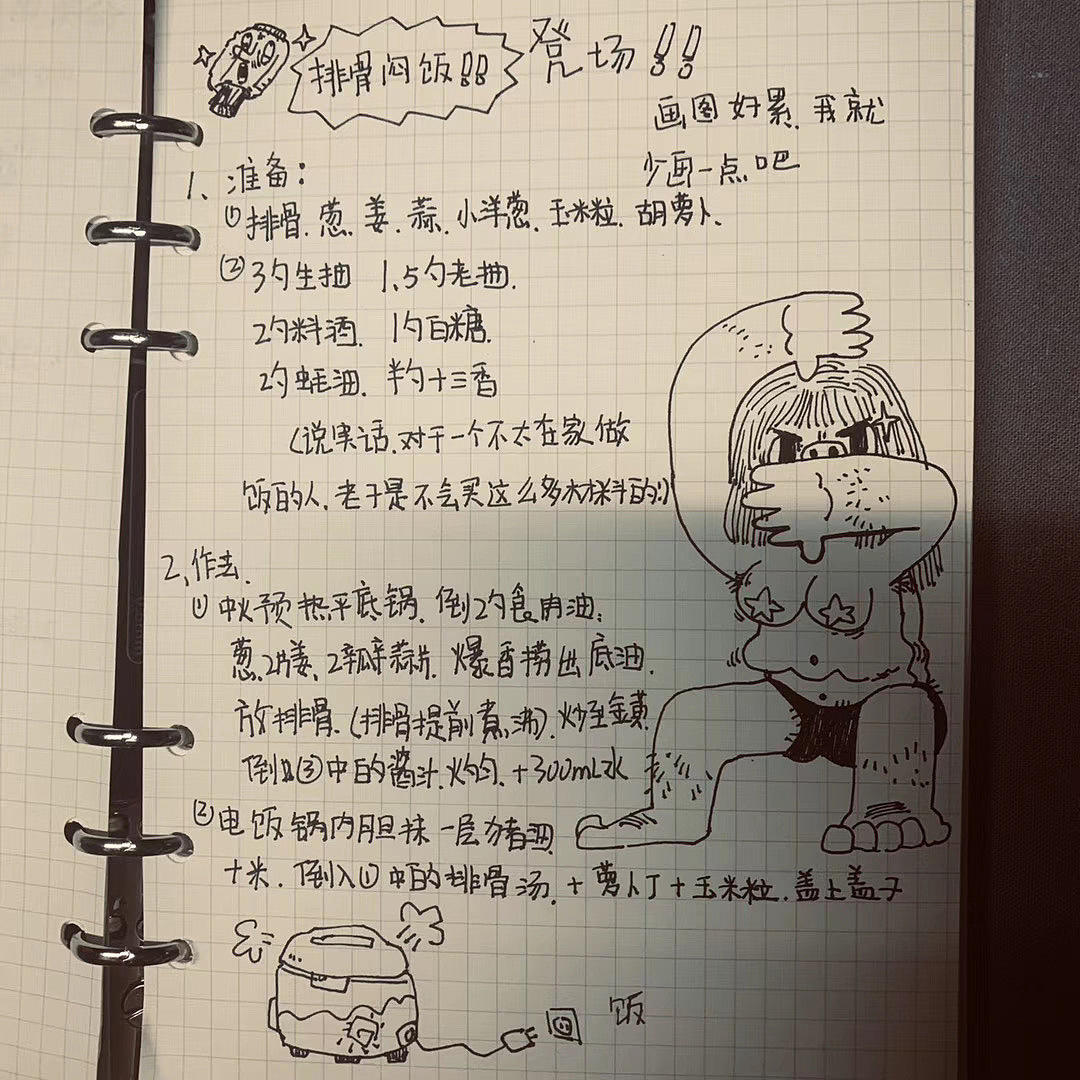 排骨闷饭!! 登场!!
画图好累. 我就
少画一点吧
1、准备:
①排骨.葱.姜.蒜.小洋葱.玉米粒.胡萝卜.
②3勺生抽 1.5勺老抽.
2勺料酒. 1勺白糖.
2勺蚝油. 半勺十三香
(说实话.对于一个不太在家做
饭的人.老子是不会买这么多木材料的:)
2、作法.
①中火预热平底锅.倒2勺食用油:
葱.2片姜.2瓣蒜片.爆香捞出底油.
放排骨.(排骨提前煮沸).炒至金黄.
倒入②中的酱汁.火匀.+300mL水
②电饭锅内胆抹一层猪油
+米.倒入①中的排骨汤.+萝卜丁+玉米粒.盖上盖子
饭